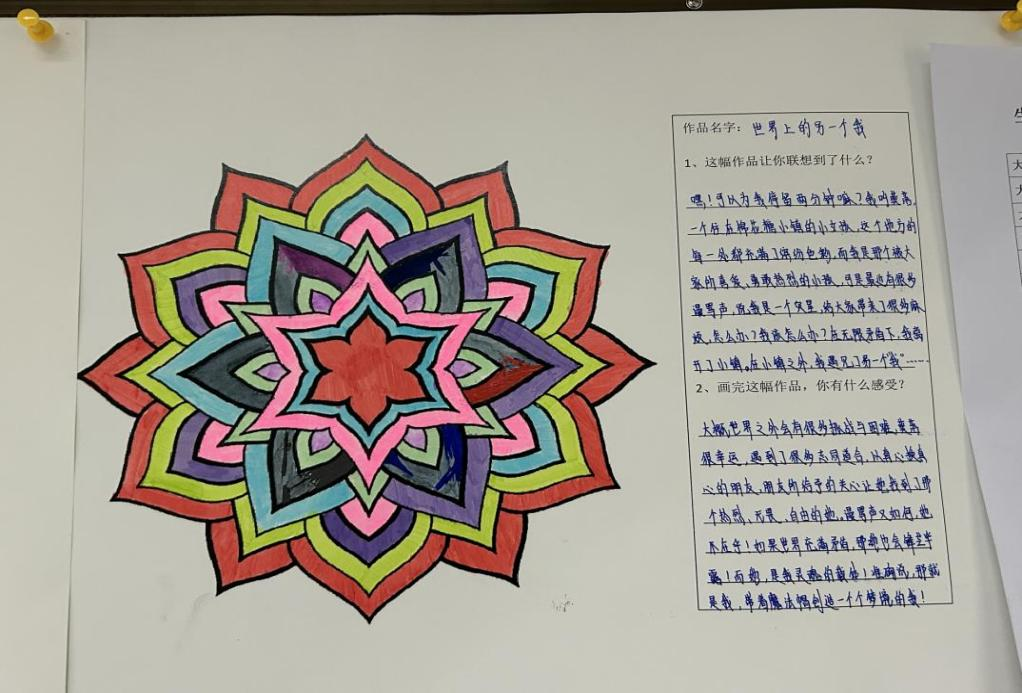 作品名字：世界上的另一个我
1、这幅作品让你联想到了什么？
嘿！可以为我停留两分钟嘛？我叫
一个住在棉花糖小镇的小女孩，这个地方的
每一处都充满了缤纷色彩，而我是那个被大
家所喜爱，勇敢热烈的小孩，可是最近有很多
谩骂声，说我是一个灾星，给大家带来了很多麻
烦，怎么办？我该怎么办？在无限矛盾下，我离
开了小镇。在小镇之外，我遇见了另一个“我”……
2、画完这幅作品，你有什么感受？
大概世界之外会有很多挑战与困难，
很幸运，遇到了很多志同道合，以真心换真
心的朋友，朋友所给予的关心让她找到了那
个热烈、无畏、自由的她，谩骂声又如何，她
不在乎！如果世界充满矛盾，哪
而她，是我灵魂的 准确说，那就
是我，带着魔法帽创造一个个梦境的我！